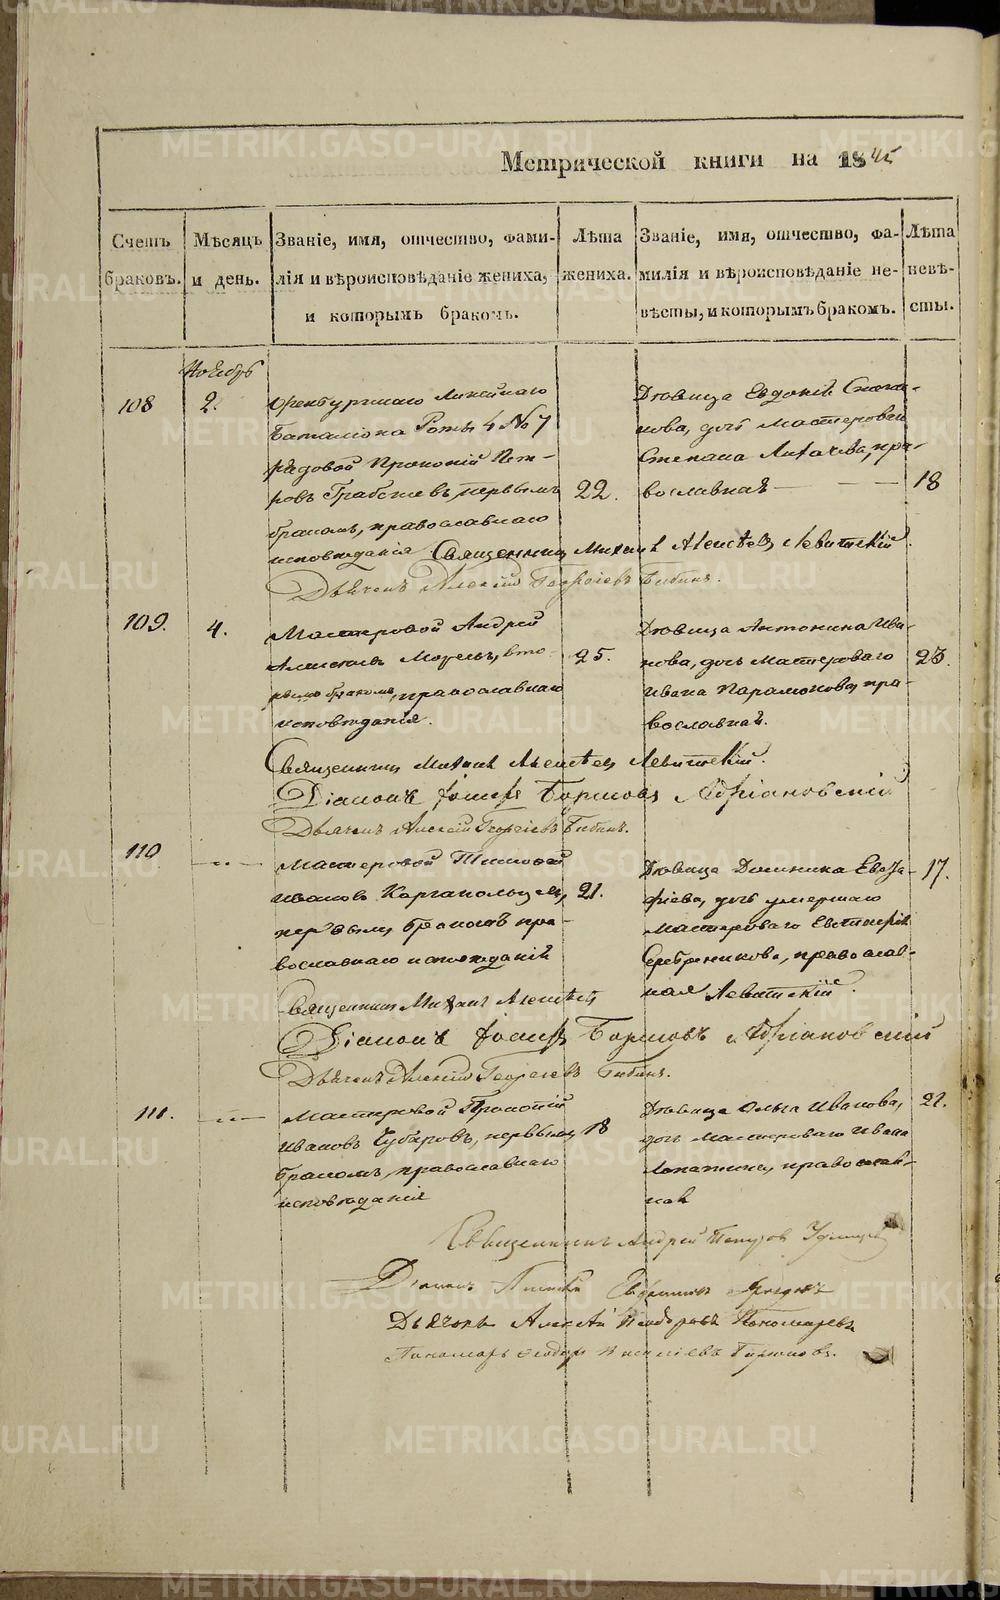 Метрической книги на 1845
Счетъ браковъ.
Мѣсяцъ и день.
Званіе, имя, отчество, фами-
лія и вѣроисповѣданіе жениха,
и которымъ бракомъ.
Лѣта жениха.
Званіе, имя, отчество, фа-
милія и вѣроисповѣданіе не-
вѣсты, и которымъ бракомъ.
Лѣта невѣ-
сты.
Ноябрь
108
2.
Оренбургскаго Линейнаго
Баталіона Роты 4 № 7
рядовой Прокопій Пет-
ровъ первымъ
бракомъ, православнаго
исповѣданія
22.
Дѣвица Евдокія Степа-
нова, дочь мастероваго
Степана Лихачева, пра-
вославная
18
Священникъ Михаилъ Алексѣевъ Левитскій.
Дьячекъ Алексій Георгіевъ Бибинъ.
109.
4.
Мастеровой Андрей
Алексѣевъ вто-
рымъ бракомъ, православнаго
исповѣданія.
25.
Дѣвица Антонина Ива-
нова, дочь мастероваго
Ивана Парамонова, пра-
вославная.
23.
Священникъ Михаилъ Алексѣевъ Левитскій.
Діаконъ Іосифъ Борисовъ Адріановскій
Дьячекъ Алексій Георгіевъ Бибинъ.
110
Мастеровой Тимофей
Ивановъ Каргапольцевъ,
первымъ бракомъ пра-
вославнаго исповѣданія
21.
Дѣвица Домника Евстра-
фіева, дочь умершаго
мастероваго
Серебреникова, православ-
ная
17.
Священникъ Михаилъ Алексѣевъ Левитскій.
Діаконъ Іосифъ Борисовъ Адріановскій
Дьячекъ Алексій Георгіевъ Бибинъ.
111.
Мастеровой Прокопій
Ивановъ Чубаровъ, первымъ
бракомъ, православнаго
исповѣданія
18
Дѣвица Ольга Иванова,
дочь мастероваго Ивана
Лопатина, православ-
ная
21.
Священникъ Андрей Петровъ
Діаконъ
Дьячекъ Алексѣй Ѳеодоровъ Пономаревъ
Пономарь Ѳеодоръ Василіевъ
METRIKI.GASO-URAL.RU